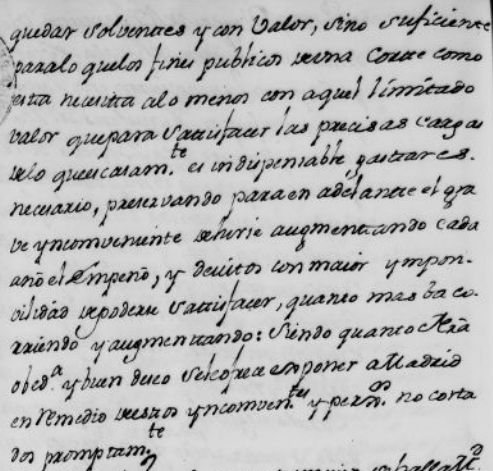 quedar solventes y con Valor, sino suficiente
para lo que los fines publicos de una Corte como
esta necesita alo menos con aquel limitado
valor que para Sattisfacer las precisas cargas
de lo que escasam.te es indispensable, gastar es.
necesario, preservando para en adelante el gra
ve ynconveniente de hirse augmentando cada
año el Empeño, y devitos con maior ympon-
vilidad de poderse Sattisfacer, quanto mas ba co-
rriendo y augmentando: Siendo quanto
obed.a y buen deseo se le ofrece exponer a Madrid
en remedio de estos ynconven.tes y no corta
dos promptam.te